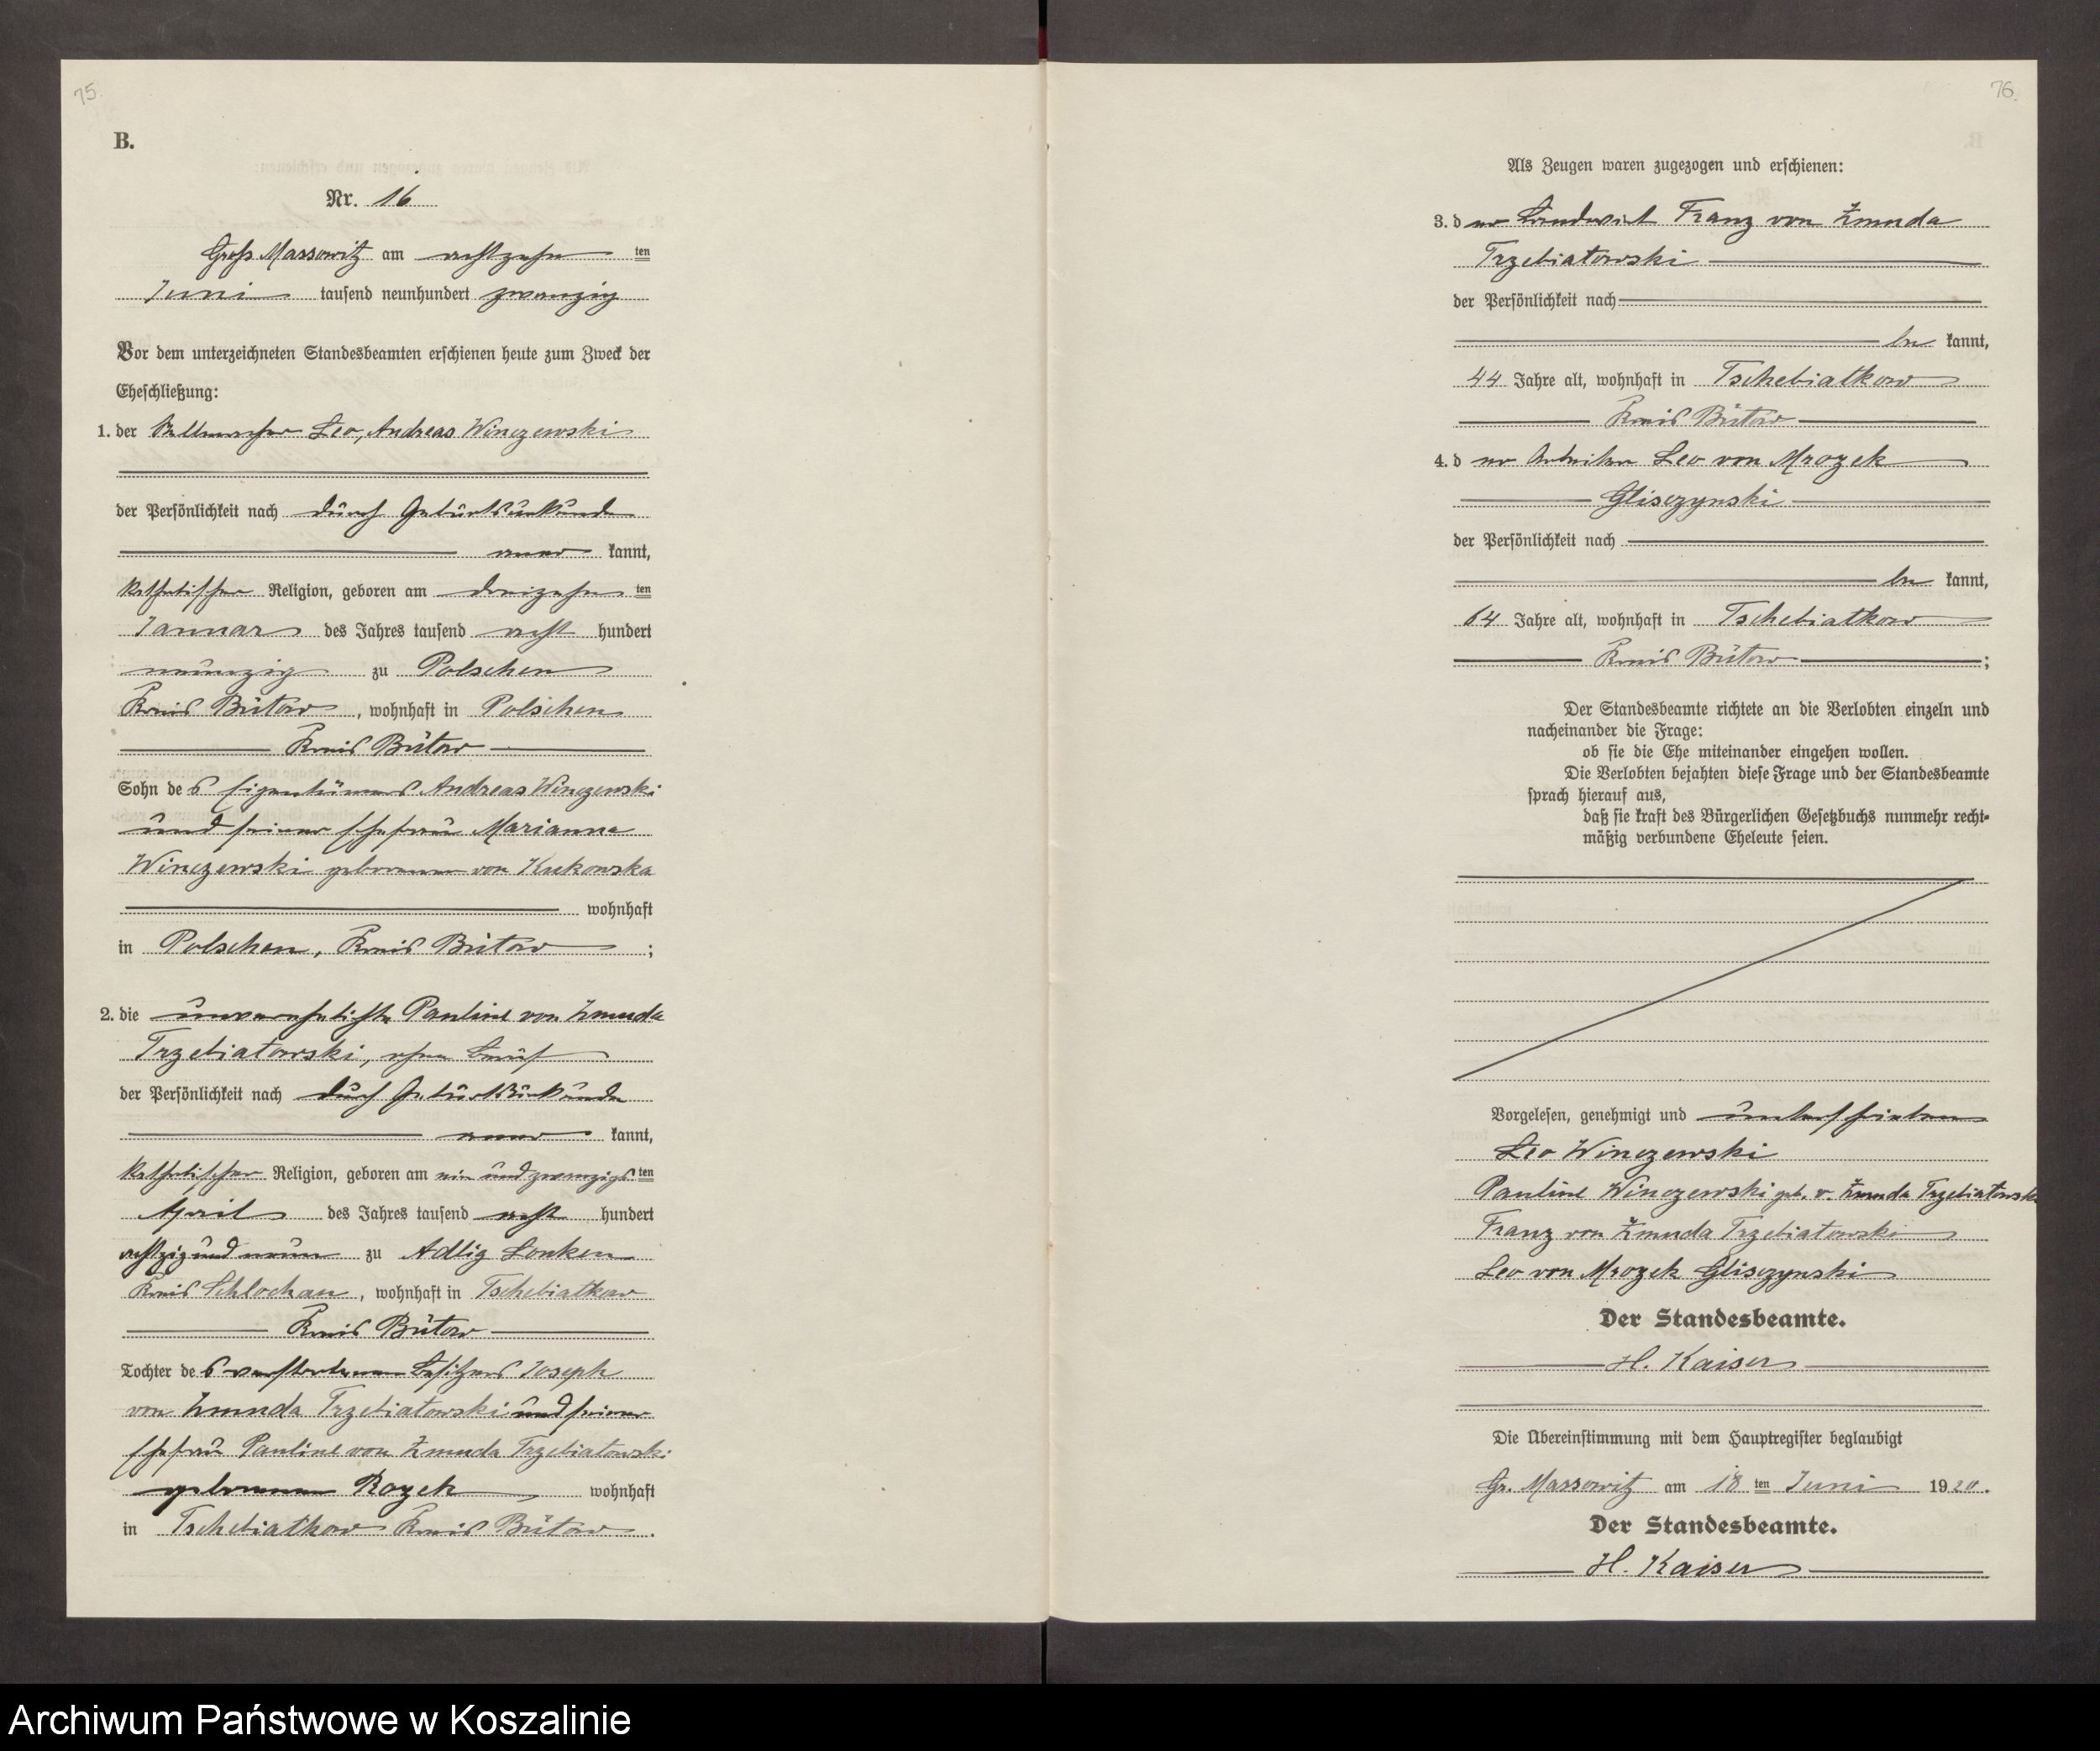 75.
B.
Nr. 16
Groß Massowitz am achtzehn ten
Juni tausend neunhundert zwanzig
Vor dem unterzeichneten Standesbeamten erschienen heute zum Zweck der
Eheschließung:
1. der Stellmacher Leo, Andreas Winczewski
der Persönlichkeit nach durch Geburtsurkunde
aner kannt,
katholischer Religion, geboren am dreizehn ten
Januar des Jahres tausend acht hundert
neunzig zu Polschen
Kreis Bütow, wohnhaft in Polschen
Kreis Bütow
Sohn des Eigentümers Andreas Winczewski
und seiner Ehefrau Marianna
Winczewski geborenen von Kukowska
wohnhaft
in Polschen, Kreis Bütow ;
2. die unverehelichte Pauline von Zmuda
Trzebiatowski, ohne Beruf
der Persönlichkeit nach durch Geburtsurkunde
aner kannt,
katholischer Religion, geboren am ein und zwanzigs ten
April des Jahres tausend acht hundert
achtzig und neun zu Adlig Lonken
Kreis Schlochau, wohnhaft in Tschebiatkow
Kreis Bütow
Tochter des verstorbenen Besitzers Joseph
von Zmuda Trzebiatowski und seiner
Ehefrau Pauline von Zmuda Trzebiatowski
geborenen Rozek wohnhaft
in Tschebiatkow Kreis Bütow.
76.
Als Zeugen waren zugezogen und erschienen:
3. der Landwirt Franz von Żmuda
Trzebiatowski
der Persönlichkeit nach
be kannt,
44 Jahre alt, wohnhaft in Tschebiatkow
Kreis Bütow
4. der Arbeiter Leo von Mrozek
Gliszzynski
der Persönlichkeit nach
be kannt,
64 Jahre alt, wohnhaft in Tschebiatkow
Kreis Bütow ;
Der Standesbeamte richtete an die Verlobten einzeln und
nacheinander die Frage:
ob sie die Ehe miteinander eingehen wollen.
Die Verlobten bejahten diese Frage und der Standesbeamte
sprach hierauf aus,
daß sie kraft des Bürgerlichen Gesetzbuchs nunmehr recht-
mäßig verbundene Eheleute seien.
Vorgelesen, genehmigt und unterschrieben
Leo Winczewski
Pauline Winczewski geb. v. Zmuda Trzebiatowski
Franz von Żmuda Trzebiatowski
Leo von Mrozek Gliszzynski
Der Standesbeamte.
H. Kaiser
Die Übereinstimmung mit dem Hauptregister beglaubigt
Gr. Massowitz am 18 ten Juni 1920.
Der Standesbeamte.
H. Kaiser
Archiwum Państwowe w Koszalinie